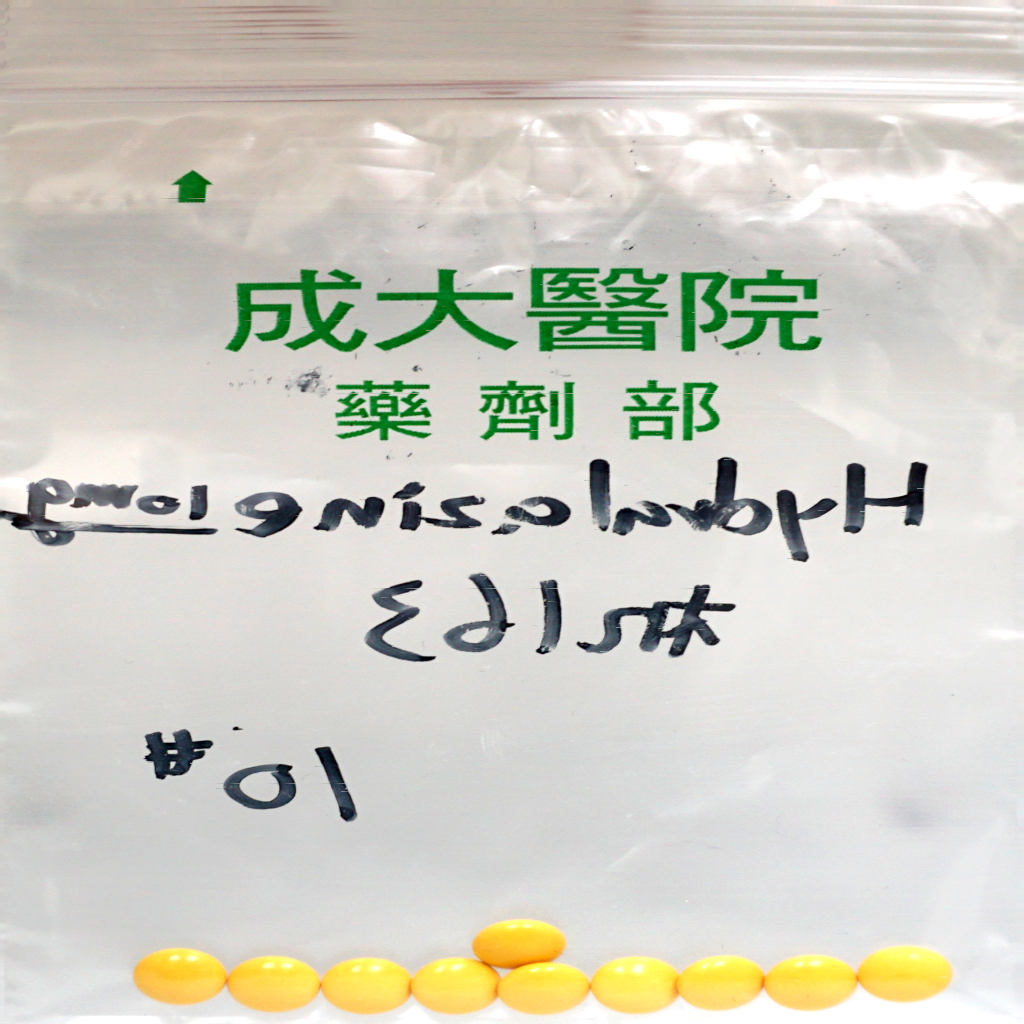 成大醫院
藥劑部
Hydralazine 10mg
163
10#